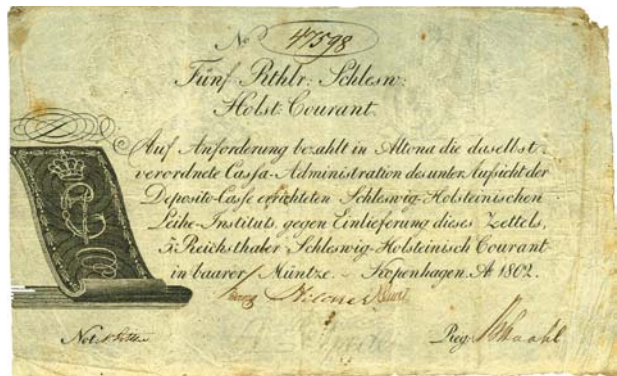 No 47598
Fünf Rthlr: Schlesw:
Holst: Courant
Auf Anforderung bezahlt in Altona die daselbst
verordnete Cassa-Administration des unter Aufsicht der
Deposito-Casse errichteten Schleswig-Holsteinischen
Leihe-Instituts, gegen Einlieferung dieses Zettels,
5 Reichsthaler Schleswig-Holsteinisch Courant
in baarer Müntze. Kopenhagen Ao 1802.
Not.
Reg.